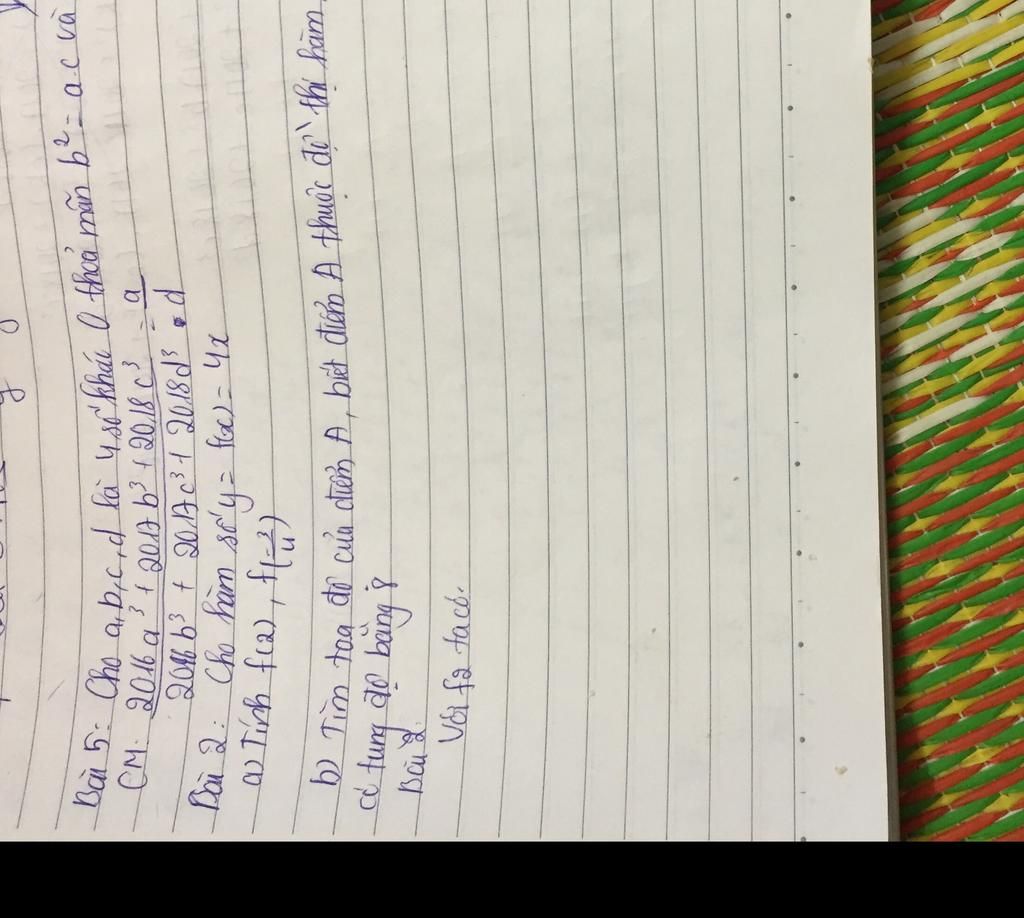 Bài 5: Cho a,b,c,d là 4 số khác 0 thoả mãn b² = a.c và
CM: 2016a³ + 2017b³ + 2018c³ = a
2016b³ + 2017c³ + 2018d³ d
Bài 2: Cho hàm số y = f(x) = 4x
a) Tính f(2), f(-3/4)
b) Tìm toạ độ của điểm A, biết điểm A thuộc đồ thị hàm
có tung độ bằng 8
Bài 2:
Với f2 ta có.